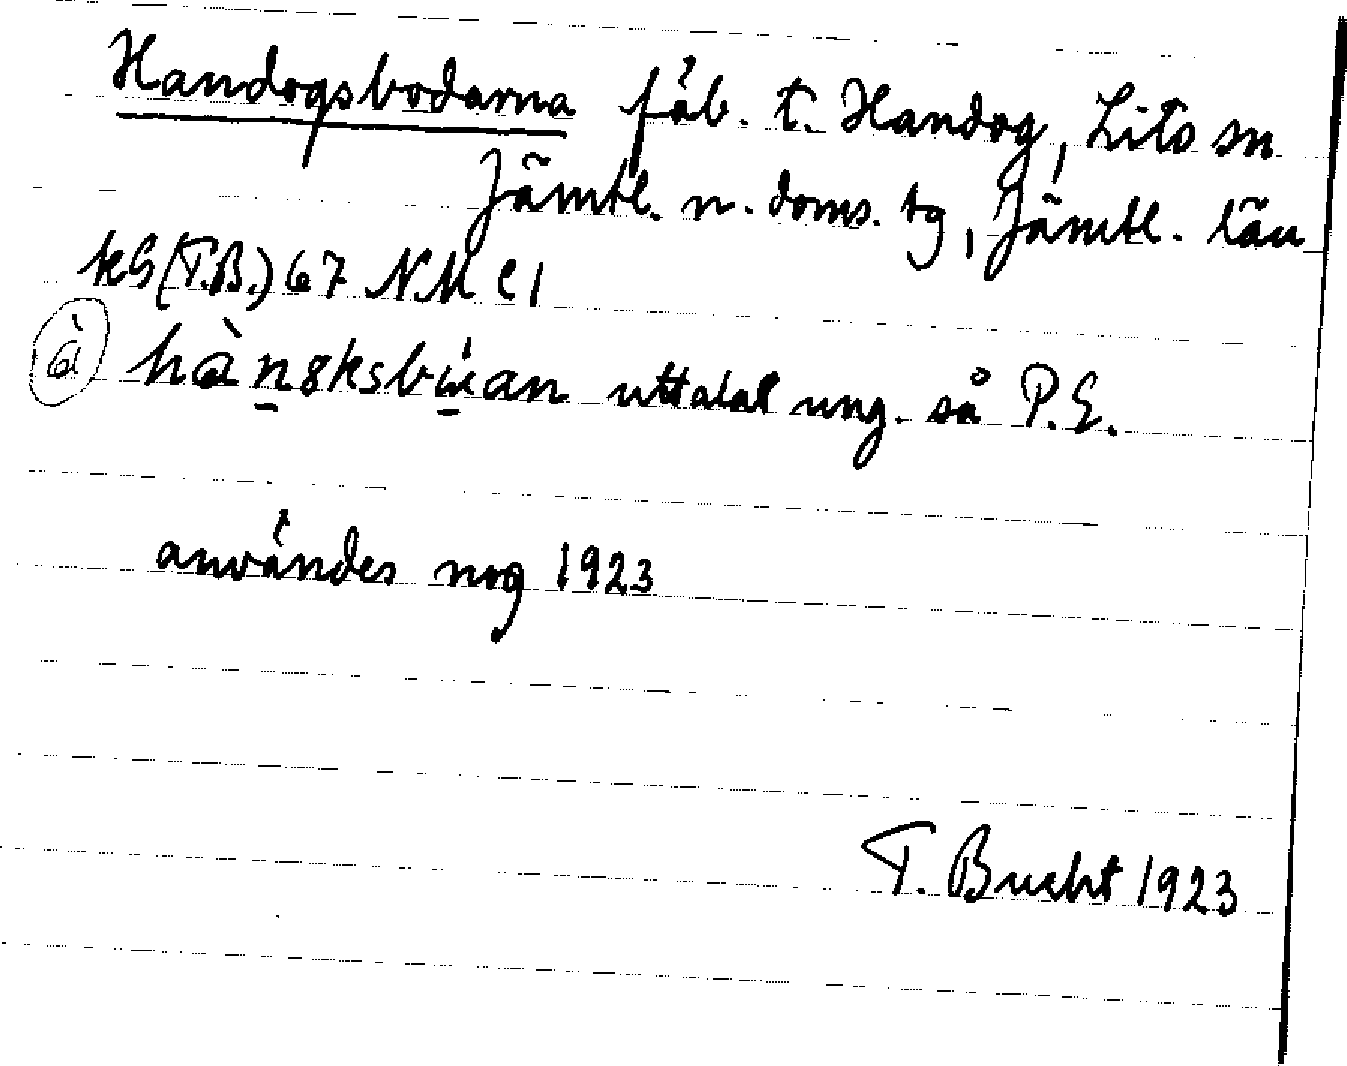 Handogsbodarna fäb. t. Handog, Lits sn
Jämtl. n. doms. tg, Jämtl. län
kG(T.B.) 67 NM c 1
à hànsksbu̇an uttalat ung. så P.E.
användes nog 1923
T. Bucht 1923